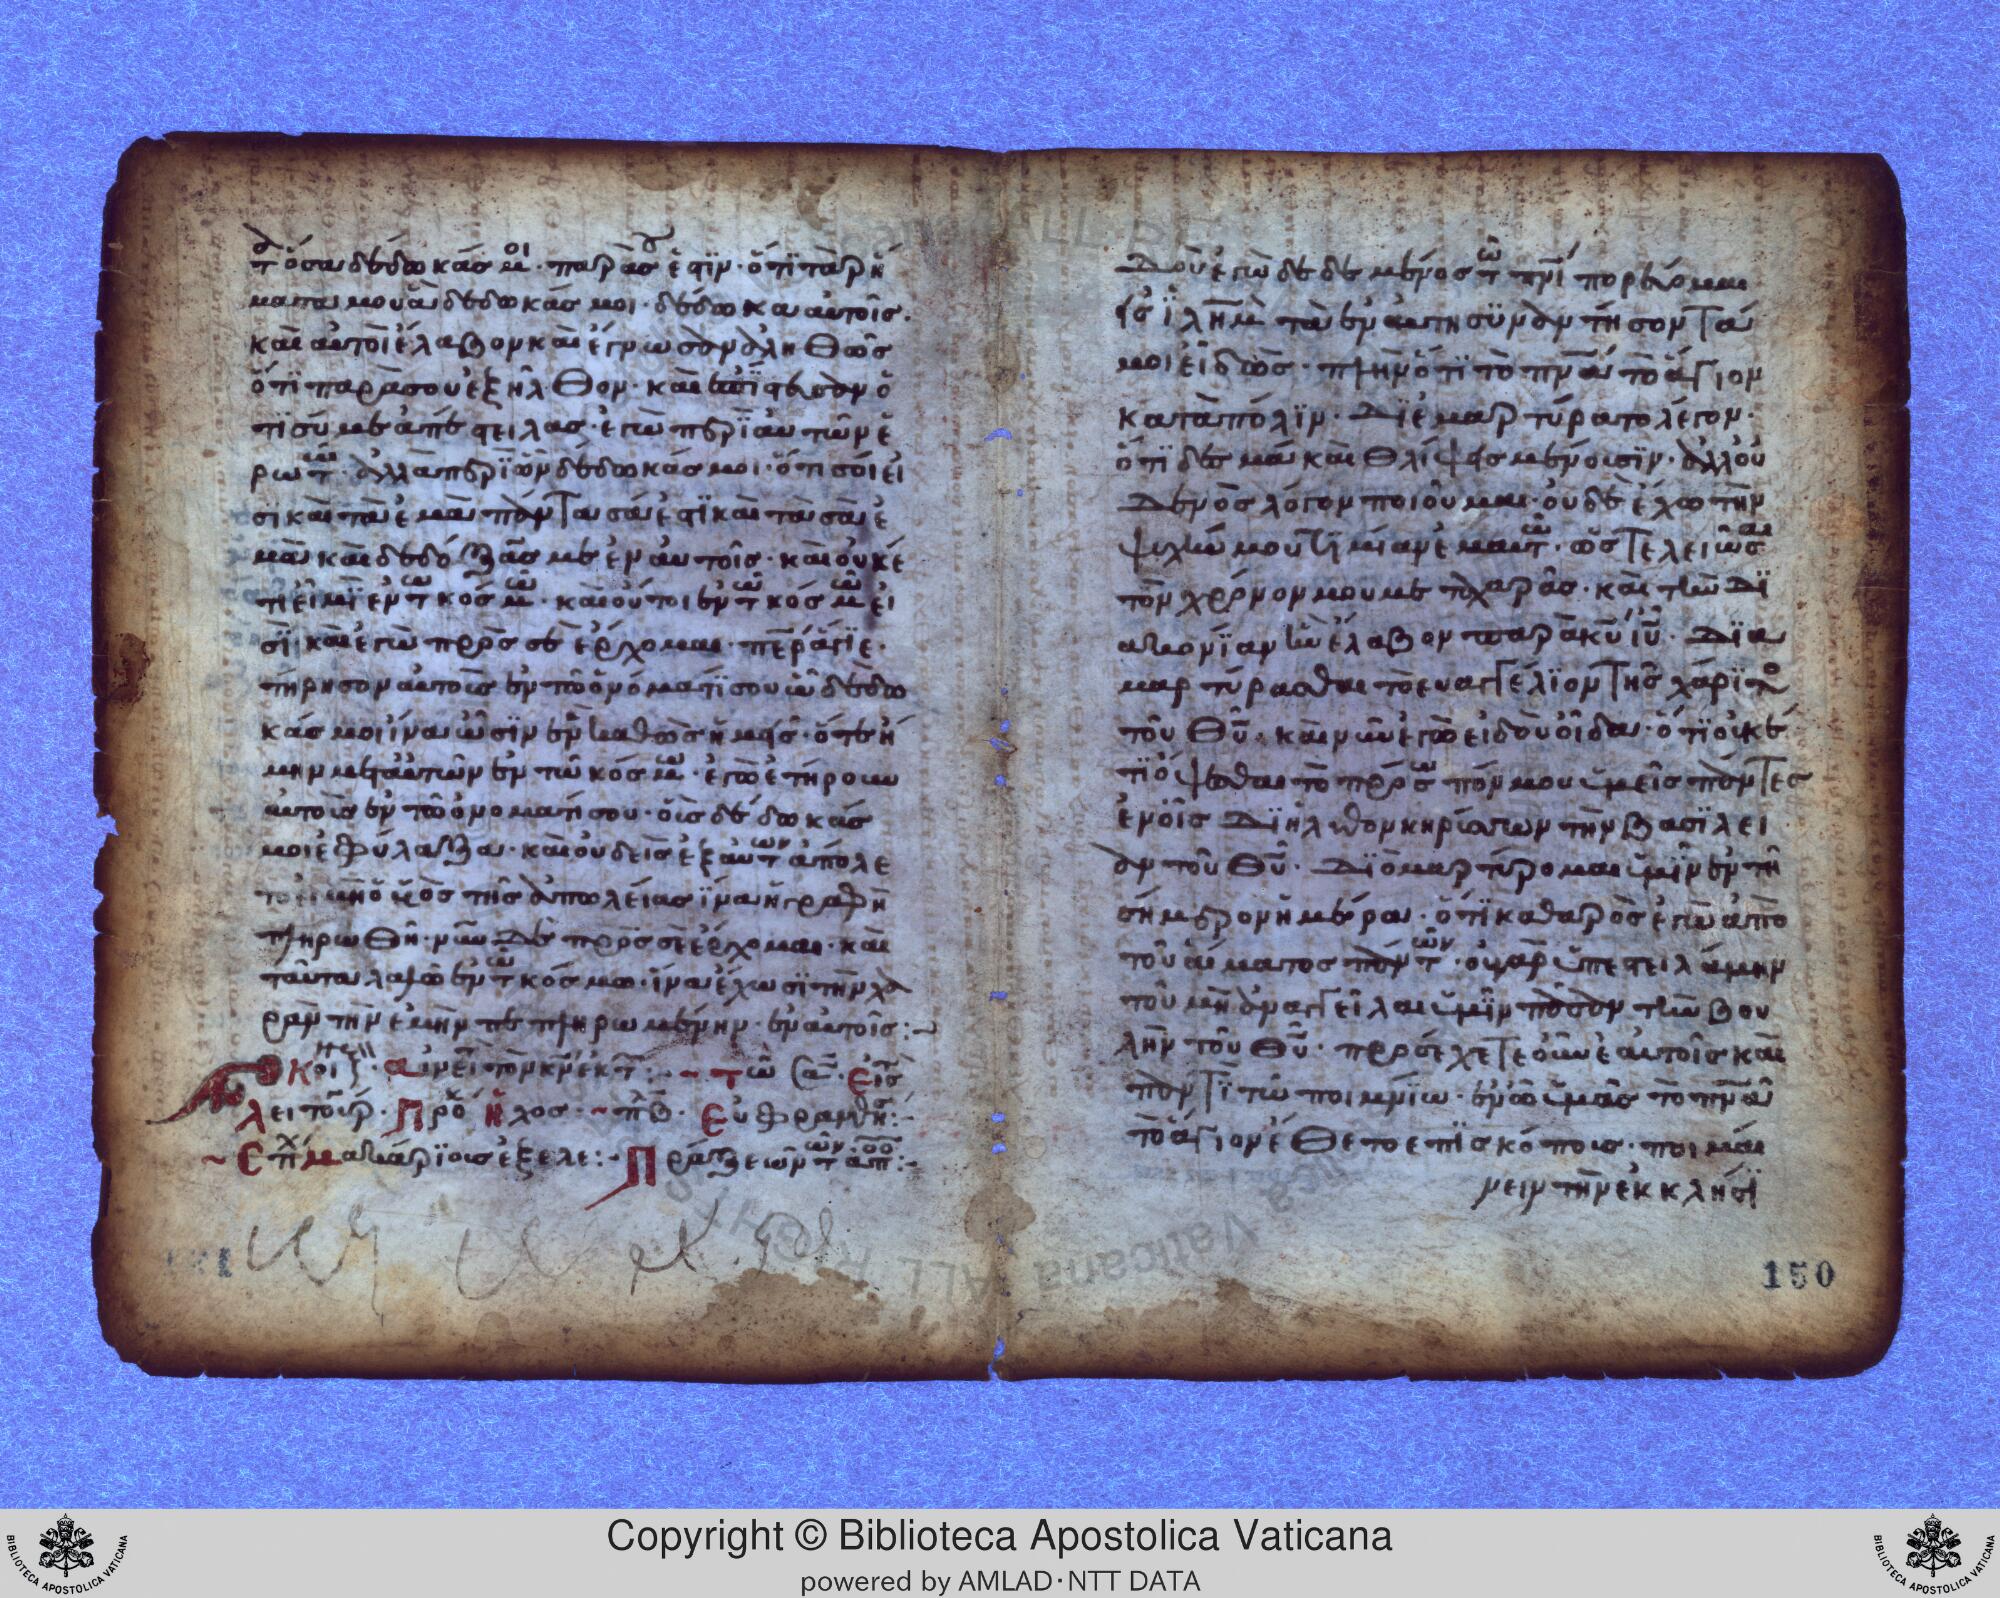 τόσα δέδωκάς μοι· παρὰ σοῦ ἐστϊν· ὅτϊ τὰ ρή
ματα μου ἃ δέδωκάς μοι· δέδωκα αὐτοῖς·
καὶ αὐτοὶ ἔλαβον καὶ ἔγνωσαν ἀληθῶς
ὅτϊ παρὰ σοῦ ἐξῆλθον· καὶ ἐπίστευσαν ὅ
τϊ σύ με ἀπέστειλας· ἐγὼ περὶ αὐτῶν ἐ
ρωτῶ· ἀλλὰ περὶ ὧν δέδωκάς μοι· ὅτι σοί εἰ
σι καὶ τὰ ἐμὰ πάντα σά ἐστϊ καὶ τὰ σὰ ἐ
μὰ καὶ δεδόξασμε ἐν αὐτοῖς· καὶ οὐκέ
τι εἰμῒ ἐν τῷ κόσμῳ· καὶ οὗτοι ἐν τῷ κόσμῳ εἰ
σῒ· καὶ ἐγὼ πρὸς σὲ ἔρχομαι· περ ἅγϊε·
τήρησον αὐτοῖς ἐν τῷ ὀνόματϊ σου ᾧ δέδω
κάς μοι ἵνα ὦσϊν ἓν καθὼς ἡμεῖς· ὅτε ἤ
μην μετ᾽ αὐτῶν ἐν τῷ κόσμῳ· ἐγὼ ἐτήρουν
αὐτοῖς ἐν τῷ ὀνόματί σου· οἷς δέδωκάς
μοι ἐφύλαξα· καὶ οὐδεὶς ἐξ αὐτῶν ἀπόλε
το εἰ μὴ ὁ ϋἱὸς τῆς ἀπωλείας ἵνα ἡ γραφὴ
πληρωθῇ· νῦν δὲ πρὸς σὲ ἔρχομαι· καὶ
ταῦτα λαλῶ ἐν τῷ κόσμω· ἵνα ἔχωσϊ τὴν χα
ρὰν τὴν ἐμὴν πεπληρωμένην· ἐν αὐτοῖς:
Κοι· αἰνεῖ τὸν κν ἐκ τ·: ~ τῶ Σα· Εἰς
λειτουρ· Πρὸ ἦχος ~ πλ β· Εὐφρανθη:·
~ Στχ μακάρϊοις ἐξελε: ~ Πράξεων τῶν ἀπο:·
Δοῦ ἐγὼ δεδεμένος τῷ πνῒ πορεύομαι
εἰς ϊλημ τὰ ἐν αὐτῇ σϋναντήσοντά
μοι εἰδώς· πλὴν ὅτϊ τὸ πνα τὸ ἅγιον
κατὰ πόλϊν· Δϊεμαρτύρατο λέγον·
ὅτϊ δεσμά καὶ θλίψεις μένουσϊν· ἀλλ᾽ οὐ
Δενὸς λόγον ποιοῦμαι· οὐδὲ ἔχω τὴν
ψυχήν μου τϊμίαν ἐμαυτῷ· ὡς τελειῶσαι
τὸν χρόνον μου με τὰ χαρᾶς· καὶ τὴν Δϊ
ακονϊαν ἣν ἔλαβον παρὰ κυ ιυ· Δϊα
μαρτύρασθαι τὸ εὐαγγέλϊον τῆς χάρϊτος
τοῦ θυ· καὶ νῦν ἐγὼ εἰδοὺ οἶδα· ὅτϊ οἰκέ
τϊ ὄψεσθαι τὸ πρόσωπόν μου ὑμεῖς πάντες
ἐν οἷς Δϊῆλθον κηρύττων τὴν βασϊλεί
αν τοῦ θυ· Δϊὸ μαρτύρομαι ὑμῖν ἐν τῇ
σήμερον ἡμέρα· ὅτϊ καθαρὸς ἐγὼ ἀπὸ
τοῦ αἵματος πάντων· οὐ γὰρ ὑπεστειλάμην
τοῦ μὴ ἀναγγεῖλαι ὑμῖν πᾶσαν τὴν βου
λὴν τοῦ θυ· προσέχετε οὖν ἑαυτοῖς καὶ
παντῒ τῶ ποιμνίω· ἐν ᾧ ὑμᾶς τὸ πνα
τὸ ἅγιον ἔθετο επϊσκόποις· ποιμαί
νειν τὴν ἐκκλησϊ
150
Copyright © Biblioteca Apostolica Vaticana
powered by AMLAD·NTT DATA
BIBLIOTECA APOSTOLICA VATICANA
BIBLIOTECA APOSTOLICA VATICANA